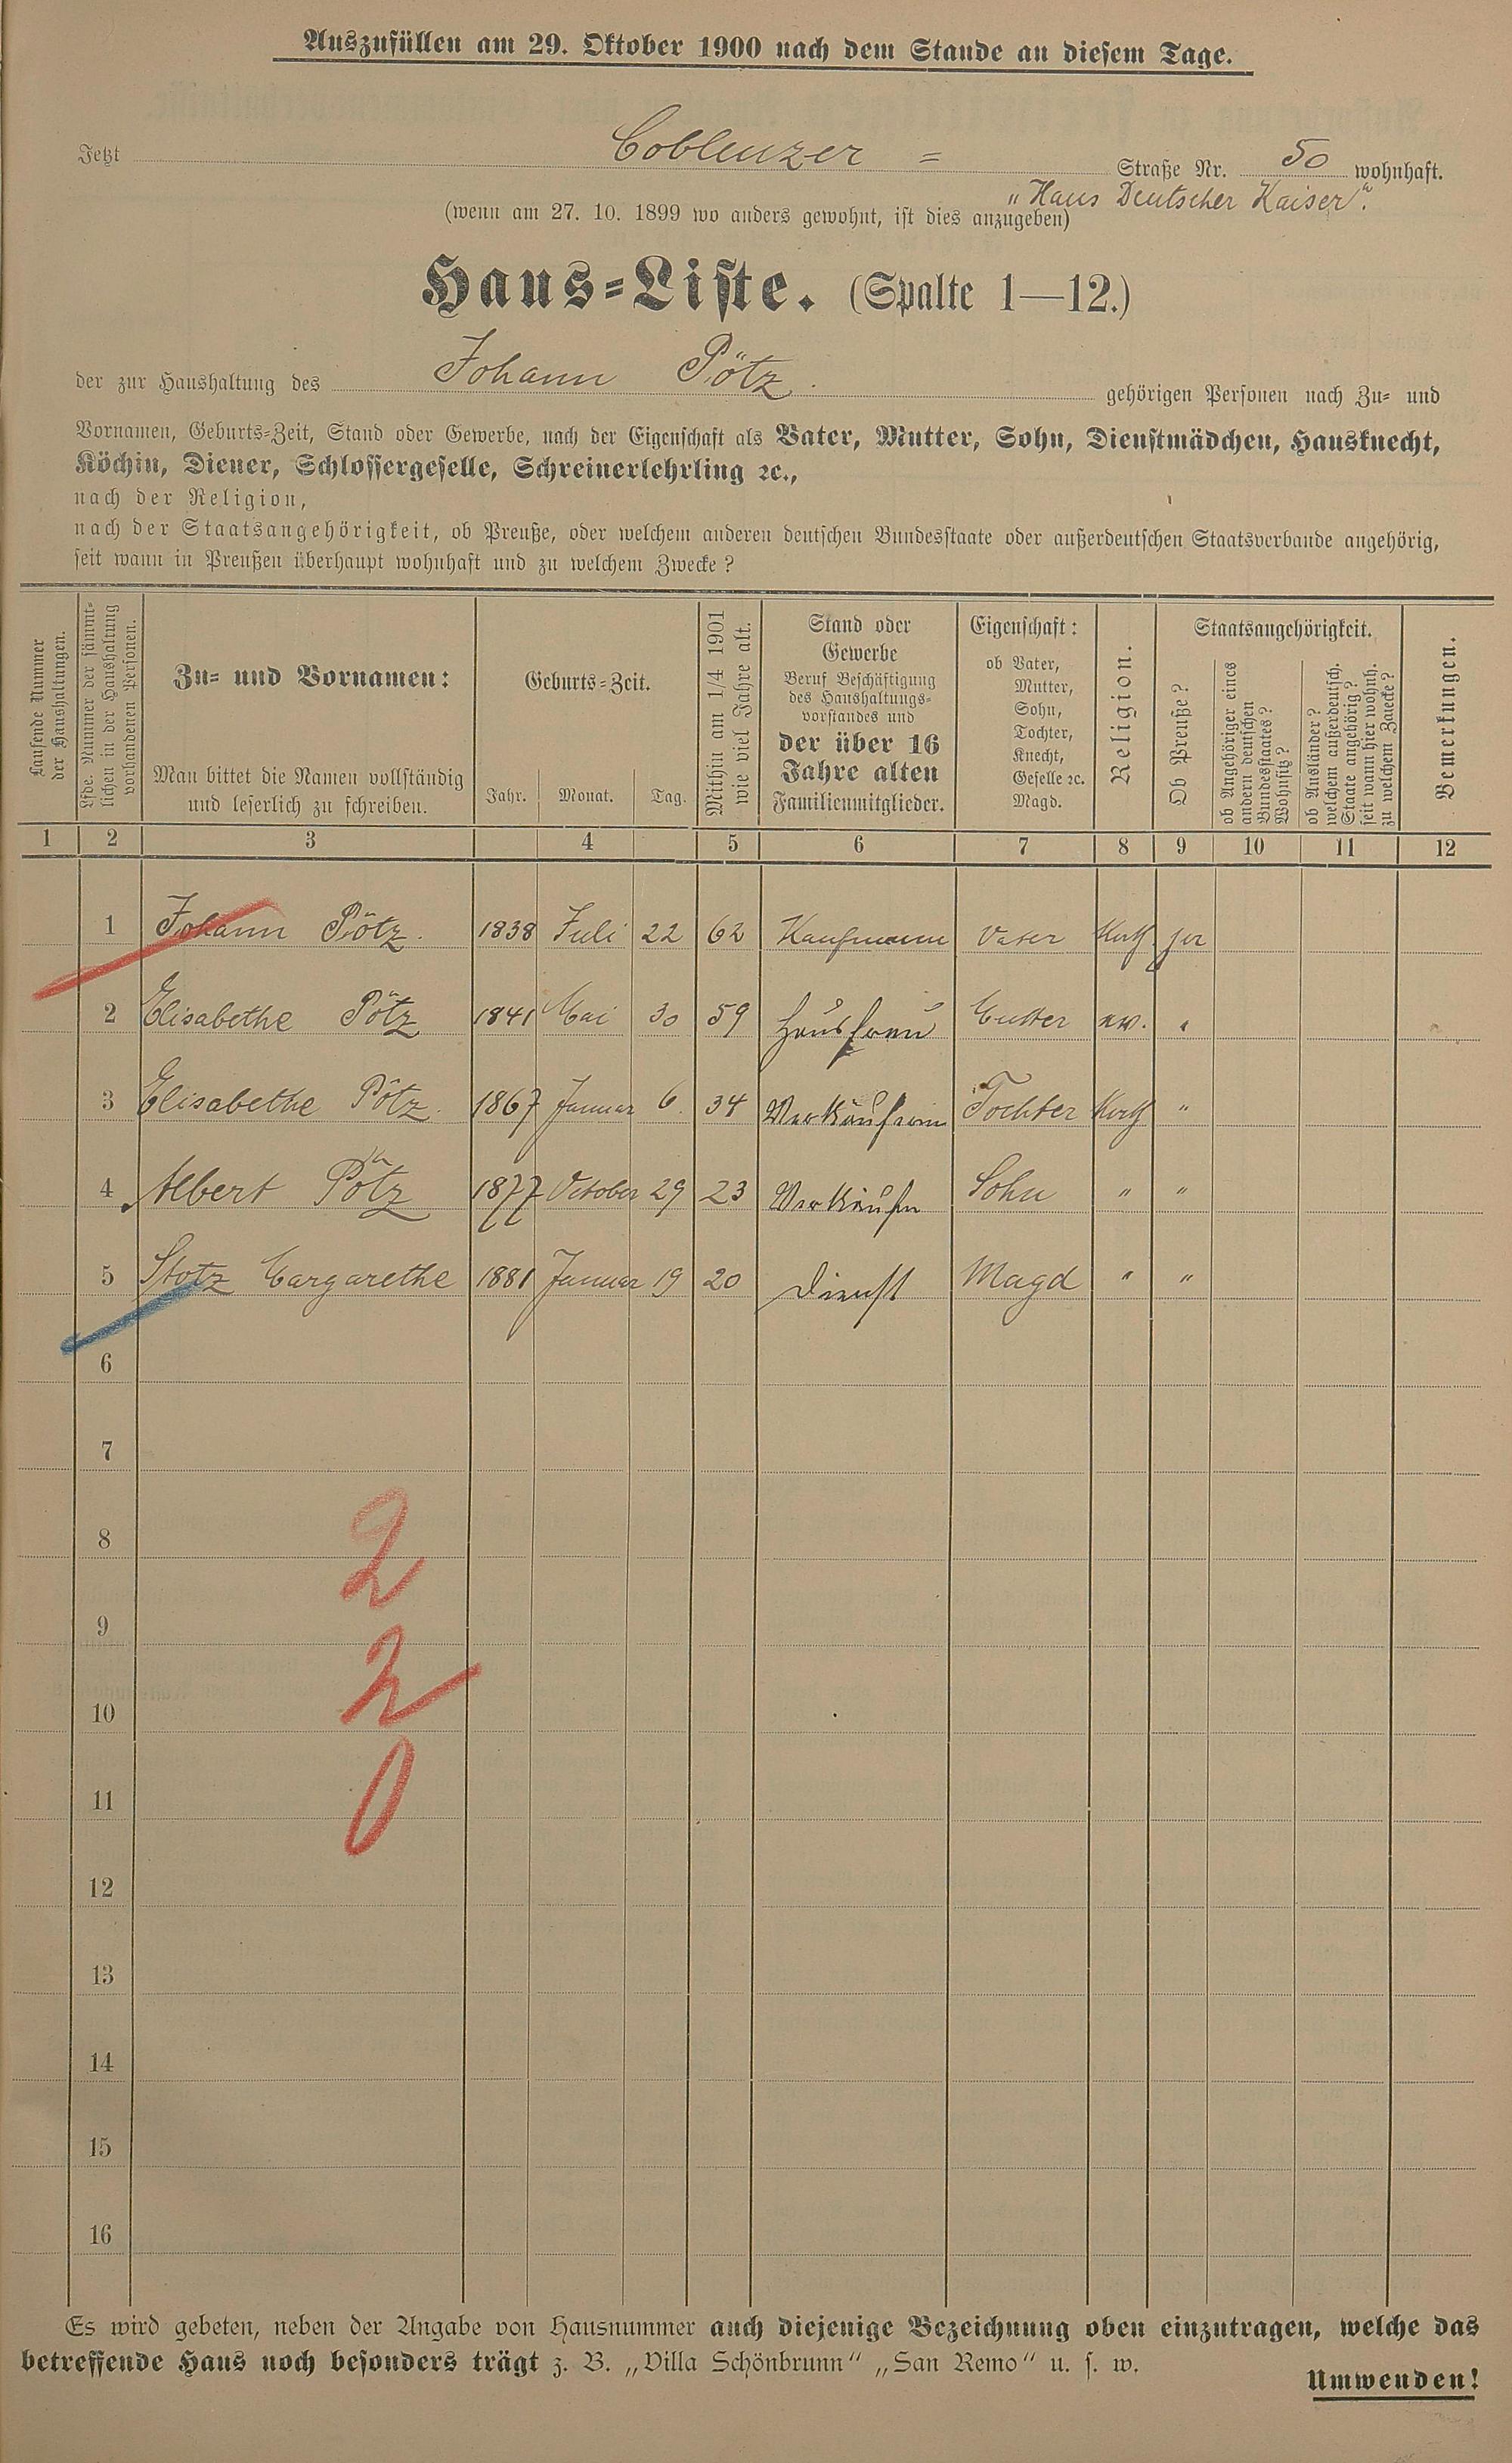 Auszufüllen am 29. Oktober 1900 nach dem Stande an diesem Tage.
Jetzt Coblenzer = Straße Nr. 50 wohnhaft.
"Haus Deutscher Kaiser".
(wenn am 27. 10. 1899 wo anders gewohnt, ist dies anzugeben)
Haus=Liste. (Spalte 1—12.)
der zur Haushaltung des Johann Pötz. gehörigen Personen nach Zu= und
Vornamen, Geburts=Zeit, Stand oder Gewerbe, nach der Eigenschaft als Vater, Mutter, Sohn, Dienstmädchen, Hausknecht,
Köchin, Diener, Schlossergeselle, Schreinerlehrling ꝛc.,
nach der Religion,
nach der Staatsangehörigkeit, ob Preuße, oder welchem anderen deutschen Bundesstaate oder außerdeutschen Staatsverbande angehörig,
seit wann in Preußen überhaupt wohnhaft und zu welchem Zwecke?
Laufende Nummer
der Haushaltungen.
Lfde. Nummer der sämmt=
lichen in der Haushaltung
vorhandenen Personen.
Zu= und Vornamen:
Man bittet die Namen vollständig
und leserlich zu schreiben.
Geburts=Zeit.
Jahr. Monat. Tag.
Mithin am 1/4 1901
wie viel Jahre alt.
Stand oder
Gewerbe
Beruf Beschäftigung
des Haushaltungs=
vorstandes und
der über 16
Jahre alten
Familienmitglieder.
Eigenschaft:
ob Vater,
Mutter,
Sohn,
Tochter,
Knecht,
Geselle ꝛc.
Magd.
Religion.
Staatsangehörigkeit.
Ob Preuße?
ob Angehöriger eines
andern deutschen
Bundesstaates?
Wohnsitz?
ob Ausländer?
welchem außerdeutsch.
Staate angehörig?
seit wann hier wohnh.
zu welchem Zwecke?
Bemerkungen.
1 2 3 4 5 6 7 8 9 10 11 12
1 Johann Pötz. 1838 Juli 22 62 Kaufmann Vater Kath
2 Elisabethe Pötz 1841 Mai 30 59 Hausfrau Mutter "
3 Elisabethe Pötz. 1867 Januar 6. 34 Verkäuferin Tochter Kath "
4 Albert Pötz 1877 October 29 23 Verkäufer Sohn " "
5 Stotz Margarethe 1881 Januar 19 20 Dienst Magd " "
6
7
8
2
9
2
10
0
11
12
13
14
15
16
Es wird gebeten, neben der Angabe von Hausnummer auch diejenige Bezeichnung oben einzutragen, welche das
betreffende Haus noch besonders trägt z. B. „Villa Schönbrunn" „San Remo" u. s. w.
Umwenden!